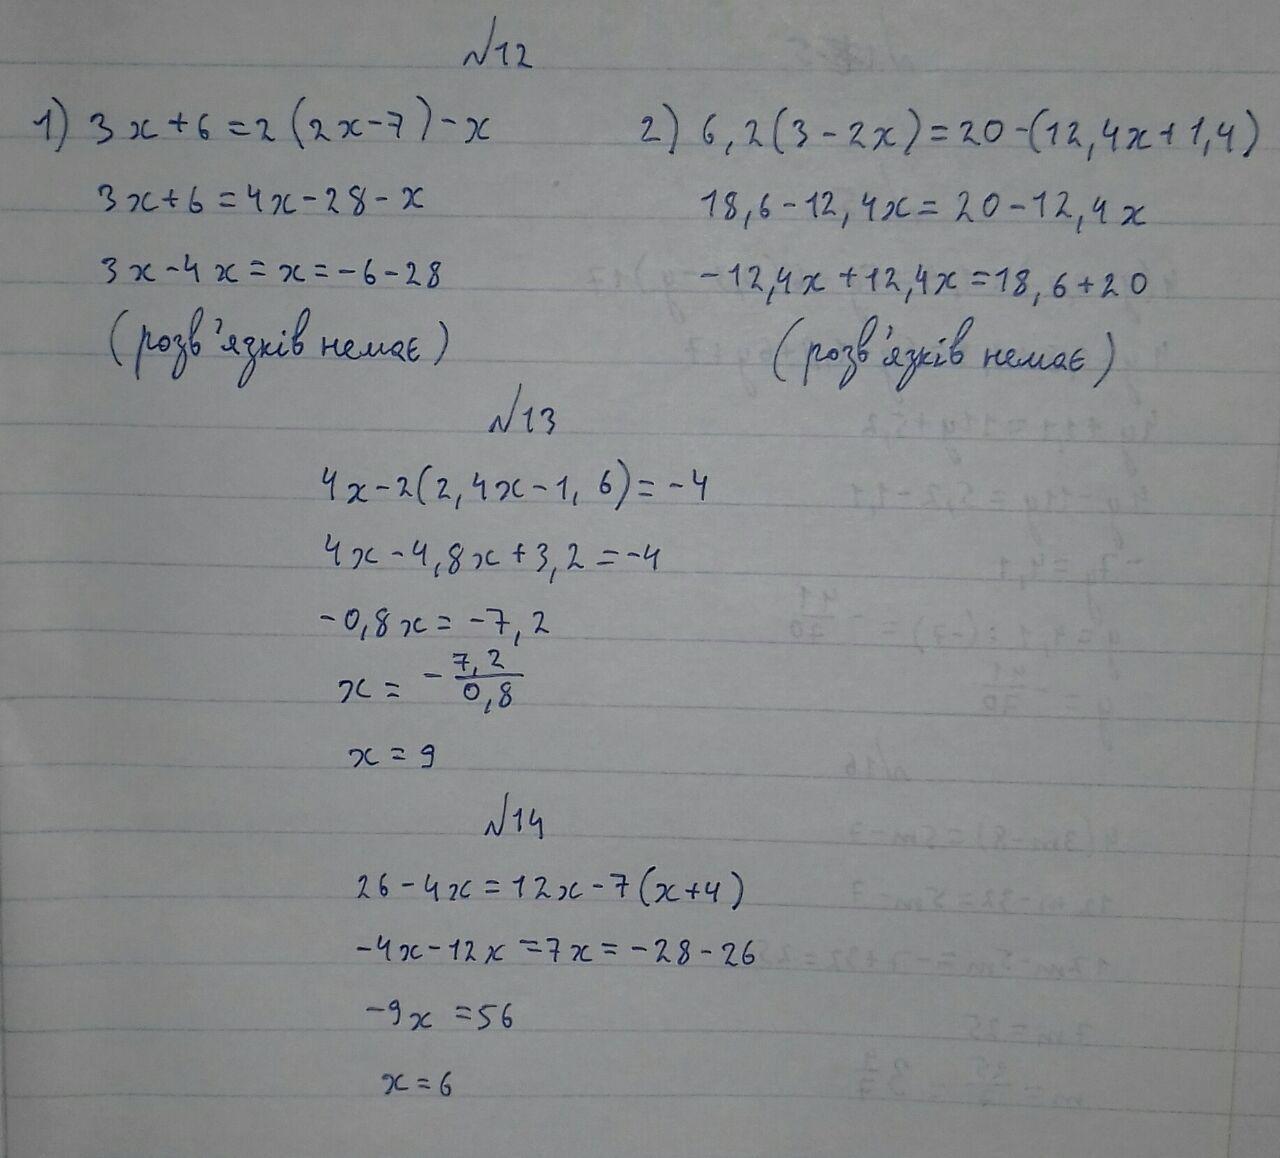 №12
1) 3x+6=2(2x-7)-x
3x+6=4x-28-x
3x-4x=x=-6-28
(розв'язків немає)
2) 6,2(3-2x)=20-(12,4x+1,4)
18,6-12,4x=20-12,4x
-12,4x+12,4x=18,6+20
(розв'язків немає)
№13
4x-2(2,4x-1,6)=-4
4x-4,8x+3,2=-4
-0,8x=-7,2
x=-7,2/0,8
x=9
№14
26-4x=12x-7(x+4)
-4x-12x=7x=-28-26
-9x=56
x=6